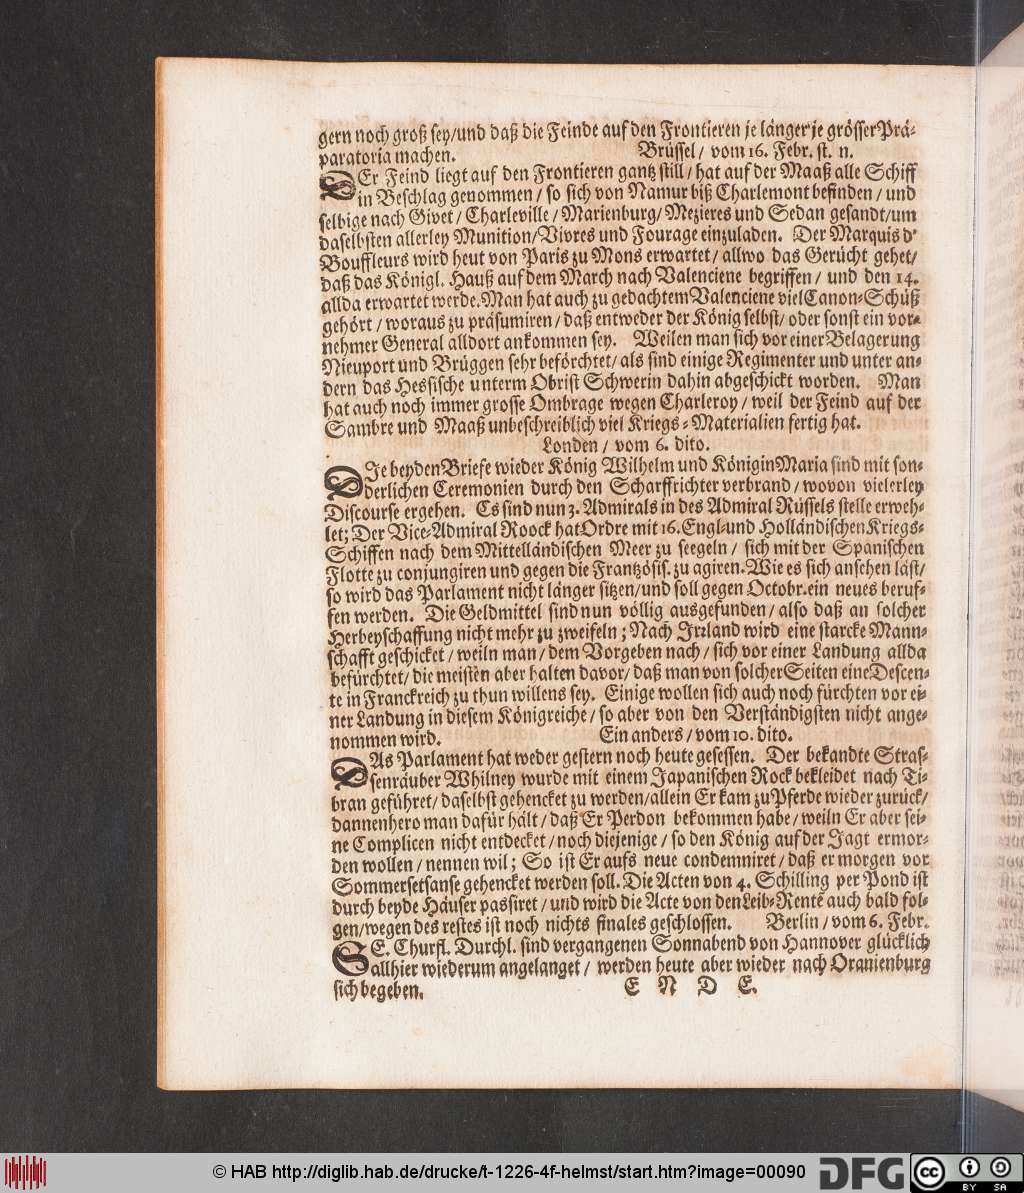 gern noch groß sey/und daß die Feinde auf den Frontieren je länger je grösser Prä-
paratoria machen. Brüssel / vom 16. Febr. st. n.
DEr Feind liegt auf den Frontieren gantz still / hat auf der Maaß alle Schiff
in Beschlag genommen / so sich von Namur biß Charlemont befinden / und
selbige nach Givet / Charleville / Marienburg/ Mezieres und Sedan gesandt/um
daselbsten allerley Munition/Vivres und Fourage einzuladen. Der Marquis d'
Bouffleurs wird heut von Paris zu Mons erwartet/ allwo das Gerücht gehet/
daß das Königl. Hauß auf dem March nach Valenciene begriffen / und den 14.
allda erwartet werde. Man hat auch zu gedachtem Valenciene viel Canon-Schüß
gehört / woraus zu präsumiren / daß entweder der König selbst/ oder sonst ein vor-
nehmer General alldort ankommen sey. Weilen man sich vor einer Belagerung
Nieuport und Brüggen sehr beförchtet/ als sind einige Regimenter und unter an-
dern das Hessische unterm Obrist Schwerin dahin abgeschickt worden. Man
hat auch noch immer grosse Ombrage wegen Charleroy / weil der Feind auf der
Sambre und Maaß unbeschreiblich viel Kriegs-Materialien fertig hat.
Londen / vom 6. dito.
DIe beyden Briefe wieder König Wilhelm und Königin Maria sind mit son-
derlichen Ceremonien durch den Scharffrichter verbrand / wovon vielerley
Discourse ergehen. Es sind nun 3. Admirals in des Admiral Rüssels stelle erweh-
let; Der Vice-Admiral Roock hat Ordre mit 16. Engl-und Holländischen Kriegs-
Schiffen nach dem Mittelländischen Meer zu seegeln / sich mit der Spanischen
Flotte zu conjungiren und gegen die Frantzösis. zu agiren. Wie es sich ansehen läst/
so wird das Parlament nicht länger sitzen/und soll gegen Octobr. ein neues beruf-
fen werden. Die Geldmittel sind nun völlig ausgefunden / also daß an solcher
Herbeyschaffung nicht mehr zu zweifeln ; Nach Irrland wird eine starcke Mann-
schafft geschicket / weiln man / dem Vorgeben nach / sich vor einer Landung allda
befürchtet/ die meisten aber halten davor/ daß man von solcher Seiten eine Descen-
te in Franckreich zu thun willens sey. Einige wollen sich auch noch fürchten vor ei-
ner Landung in diesem Königreiche / so aber von den Verständigsten nicht ange-
nommen wird. Ein anders / vom 10. dito.
DAs Parlament hat weder gestern noch heute gesessen. Der bekandte Stras-
senräuber Whilney wurde mit einem Japanischen Rock bekleidet nach Ti-
bran geführet/ daselbst gehencket zu werden/allein Er kam zu Pferde wieder zurück/
dannenhero man dafür hält / daß Er Perdon bekommen habe / weiln Er aber sei-
ne Complicen nicht entdecket / noch diejenige / so den König auf der Jagt ermor-
den wollen / nennen wil ; So ist Er aufs neue condemniret / daß er morgen vor
Sommersetsanse gehencket werden soll. Die Acten von 4. Schilling per Pond ist
durch beyde Häuser passiret / und wird die Acte von den Leib-Rente auch bald fol-
gen/wegen des restes ist noch nichts finales geschlossen. Berlin / vom 6. Febr.
SE. Churfl. Durchl. sind vergangenen Sonnabend von Hannover glücklich
allhier wiederum angelanget / werden heute aber wieder nach Oranienburg
sich begeben. E N D E.
© HAB http://diglib.hab.de/drucke/t-1226-4f-helmst/start.htm?image=00090
DFG
cc BY SA